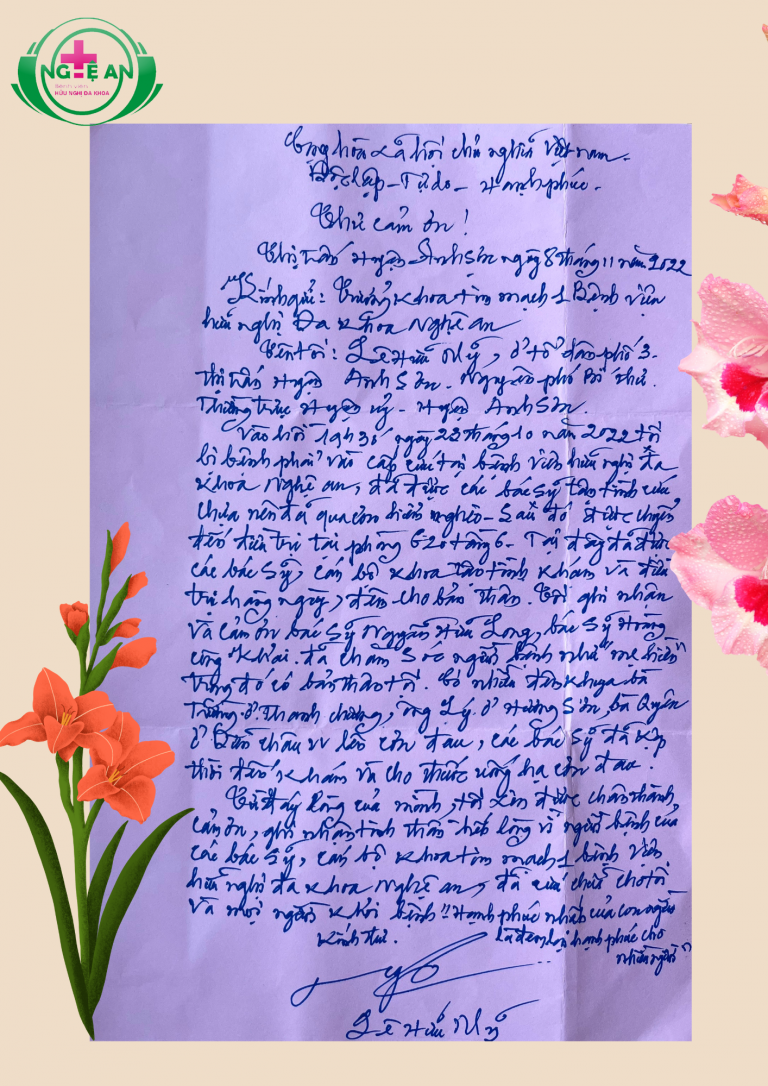 NGHỆ AN
BỆNH VIỆN
HỮU NGHỊ ĐA KHOA
Cộng hòa xã hội chủ nghĩa Việt nam.
Độc lập - Tự do - Hạnh phúc.
Thư cảm ơn!
Thị trấn huyện Anh Sơn ngày 8 tháng 11 năm 2022
Kính gửi: Trưởng khoa tim mạch 1 Bệnh viện
hữu nghị Đa khoa Nghệ an
Tên tôi: Lê Hữu Mỹ, ở tổ dân phố 3.
thị trấn huyện Anh Sơn - Nguyên phó Bí thư
Thường trực huyện ủy - huyện Anh Sơn.
Vào hồi 19h 35 ngày 23 tháng 10 năm 2022 tôi
bị bệnh phải vào cấp cứu tại bệnh viện hữu nghị đa
khoa Nghệ an, đã được các bác sỹ tận tình cứu
chữa nên đã qua cơn hiểm nghèo - Sau đó được chuyển
đến điều trị tại phòng 620 tầng 6 - Tại đây đã được
các bác sỹ, cán bộ khoa tận tình khám và điều
trị hàng ngày, đêm cho bản thân. Tôi ghi nhận
và cảm ơn bác sỹ Nguyễn Hữu Long, bác sỹ Hoàng
Công Khải đã chăm sóc người bệnh như "mẹ hiền"
trong đó có bản thân tôi. Có nhiều đêm khuya bà
Trường ở Thanh chương, ông Lý ở Hương Sơn, bà Quyên
ở Diễn châu vv lên cơn đau, các bác sỹ đã kịp
thời đến khám và cho thuốc uống hạ cơn đau.
Từ đáy lòng của mình, tôi xin được chân thành
cảm ơn, ghi nhận tinh thần hết lòng vì người bệnh của
các bác sỹ, cán bộ khoa tim mạch 1 bệnh viện
hữu nghị đa khoa Nghệ an, đã cứu chữa cho tôi
và mọi người khỏi bệnh "Hạnh phúc nhất của con người
là đem lại hạnh phúc cho
nhiều người"
Kính thư.
Lê Hữu Mỹ